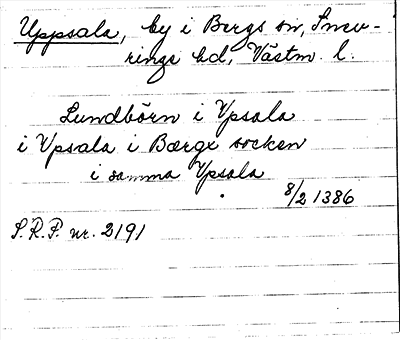 Uppsala, by i Bergs sn, Snev-
ringe hd, Västm. l.
Lundbörn i Vpsala
i Vpsala i Bærgx socken
i samma Vpsala
8/2 1386
S.R.P. nr. 2191